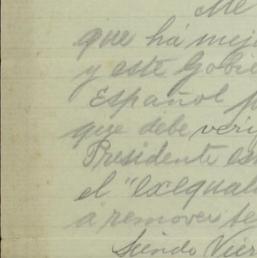 Me
que há mej
y este Gobie
Español p
que debe veri
Presidente es
el "exequatu
a remover
Siendo Vier